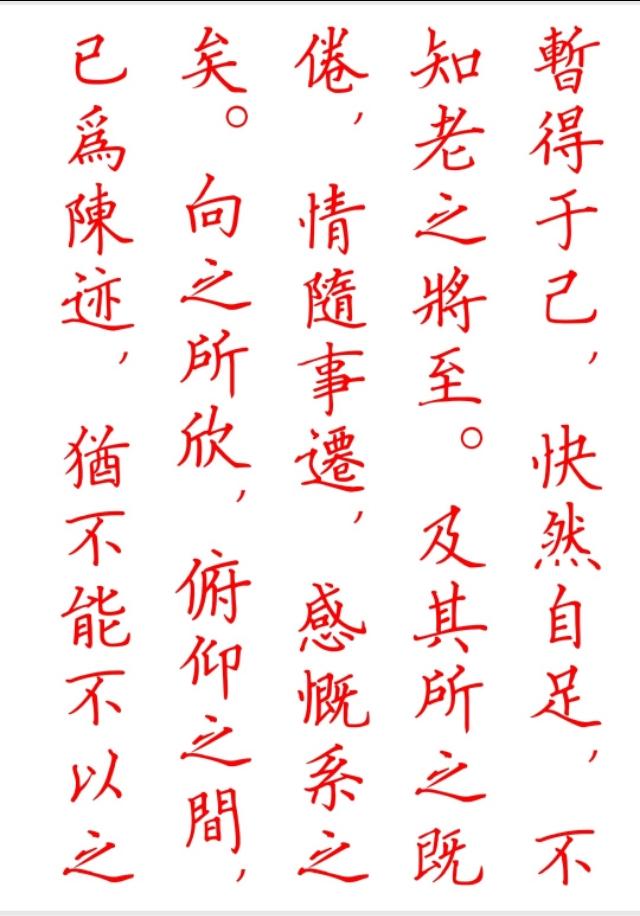 暫得于己，快然自足，不
知老之將至。及其所之既
倦，情隨事遷，感慨系之
矣。向之所欣，俯仰之間，
已為陳迹，猶不能不以之